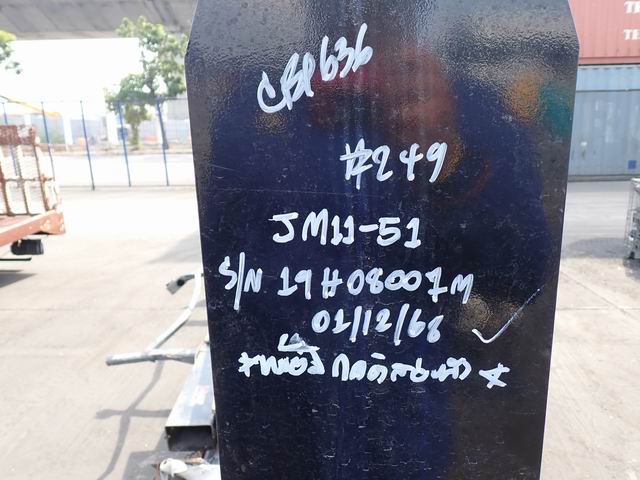 CBP636
#249
JM11-51
S/N 19H08007M
01/12/68